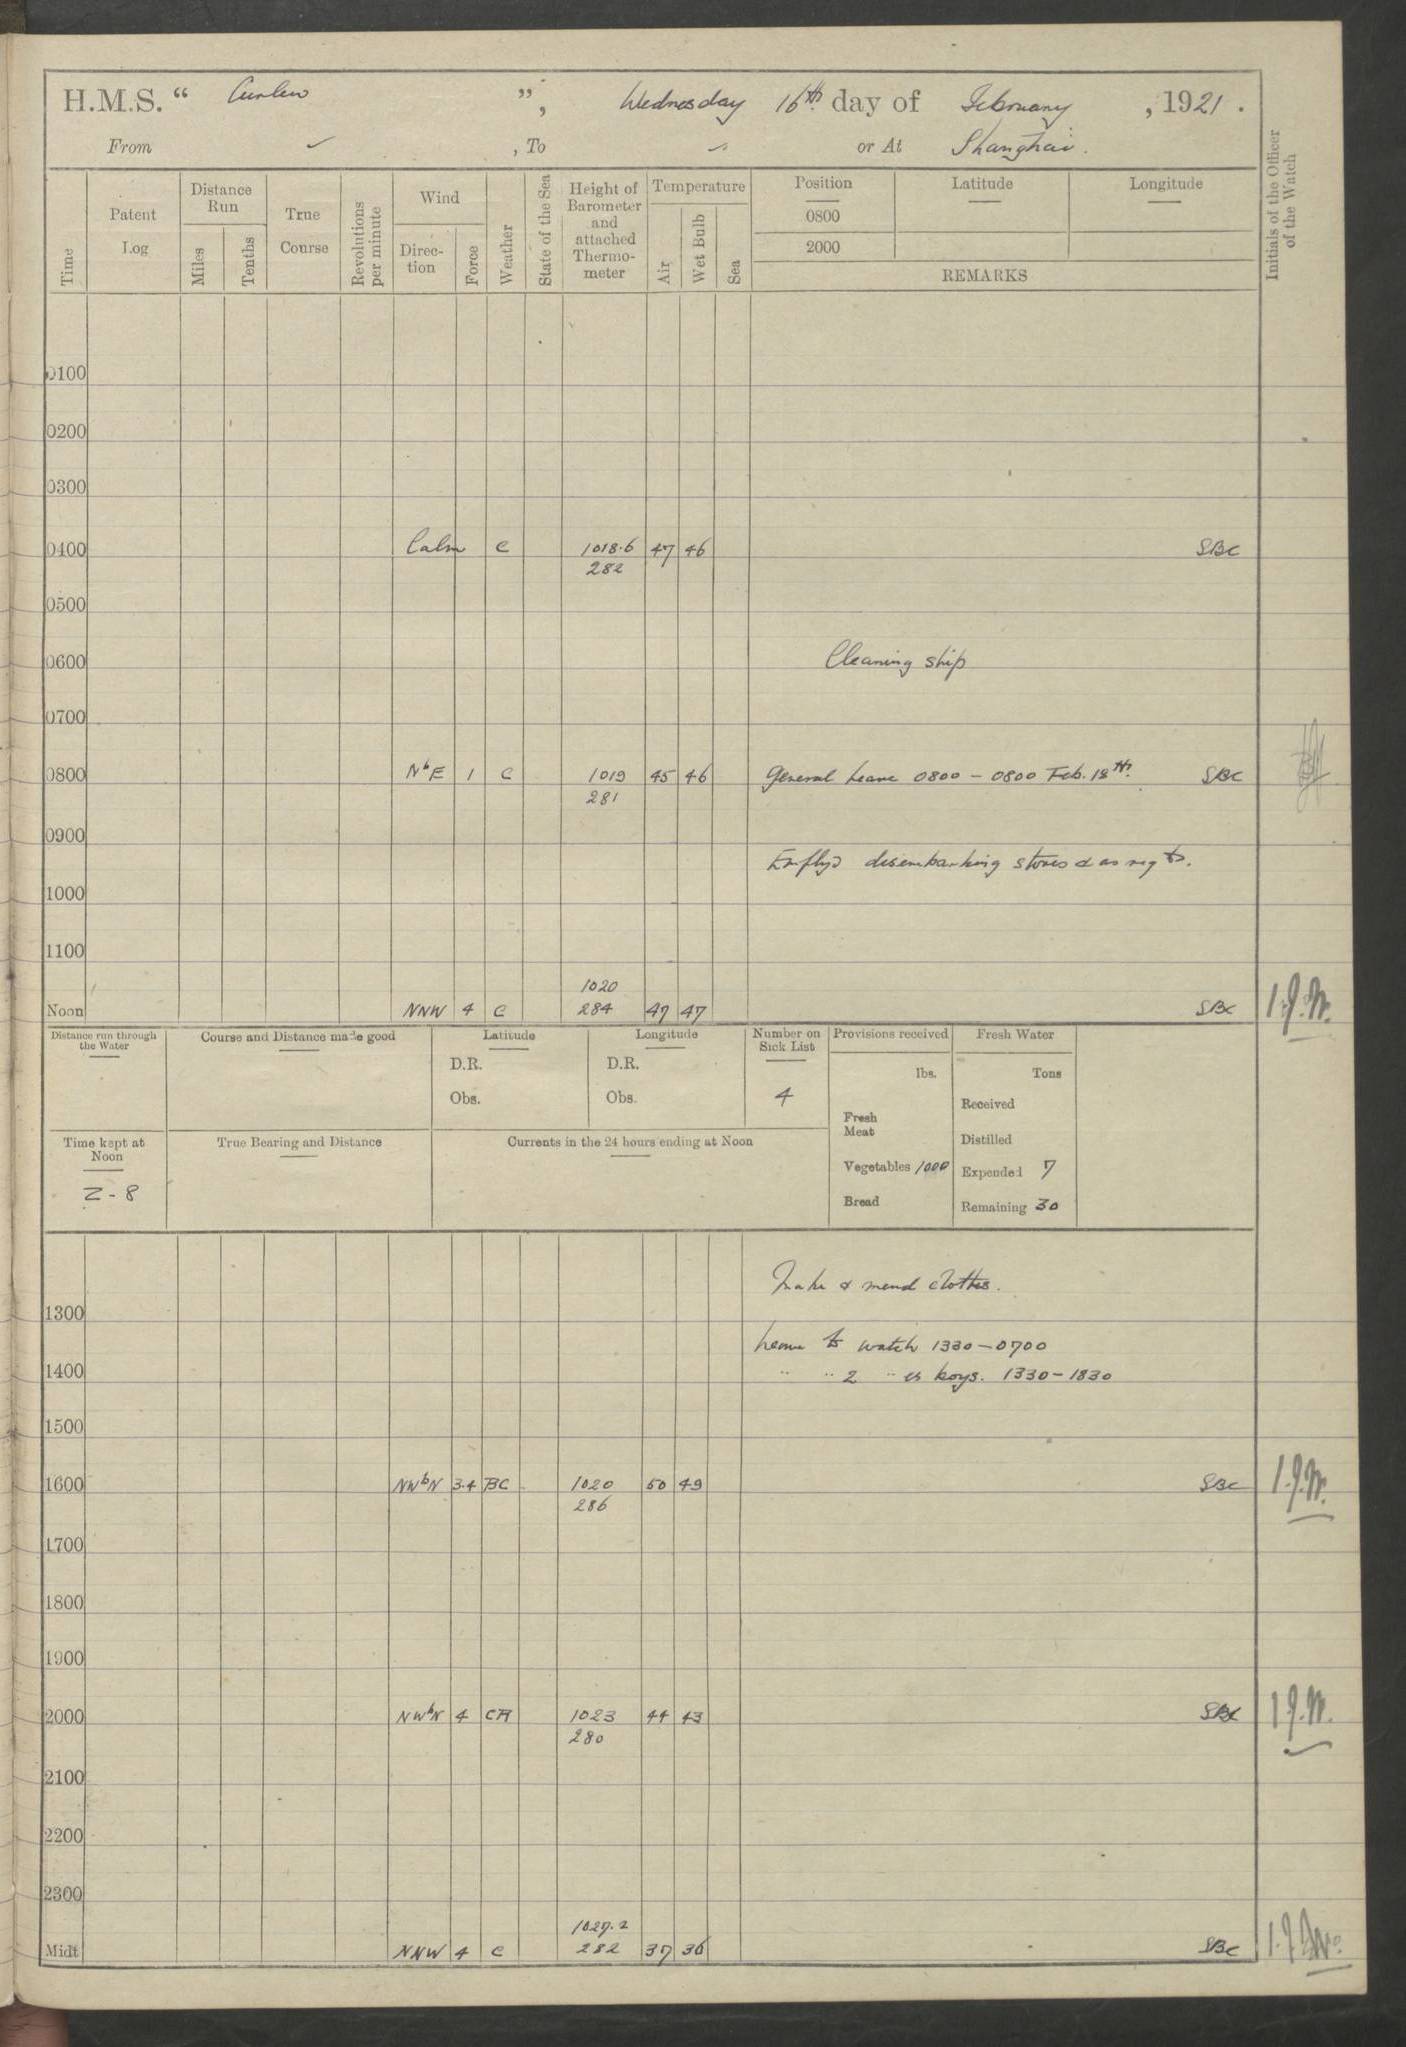 H.M.S. “ Curlew ”, Wednesday 16th day of February , 1921 .
From ✓ , To ✓ or At Shanghai .
Time
Patent Log
Distance Run
Miles
Tenths
True Course
Revolutions per minute
Wind
Direc-tion
Force
Weather
State of the Sea
Height of Barometer and attached Thermo-meter
Temperature
Air
Wet Bulb
Sea
Position
0800
2000
Latitude
Longitude
REMARKS
Initials of the Officer of the Watch
0100
0200
0300
0400 Calm C 1018.6 47 46 SBC
282
0500
0600 Cleaning ship
0700
0800 NbE 1 C 1019 45 46 General Leave 0800 – 0800 Feb. 18th. SBC
281
0900
Employd disembarking stores & as reqte.
1000
1100
1020
Noon NNW 4 C 284 47 47 SBC
Distance run through the Water
Course and Distance made good
Latitude
D.R.
Obs.
Longitude
D.R.
Obs.
Number on Sick List
4
Provisions received
lbs.
Fresh Meat
Vegetables 1000
Bread
Fresh Water
Tons
Received
Distilled
Expended 7
Remaining 30
Time kept at Noon
Z - 8
True Bearing and Distance
Currents in the 24 hours ending at Noon
Make & mend clothes.
1300
Leave to watch 1330 – 0700
1400 " " 2 " boys. 1330 – 1830
1500
1600 NWbN 3.4 BC 1020 50 49 SBC
286
1700
1800
1900
2000 NWbN 4 CR 1023 44 43 SBC
280
2100
2200
2300
1027.2
Midt NNW 4 C 282 37 36 SBC